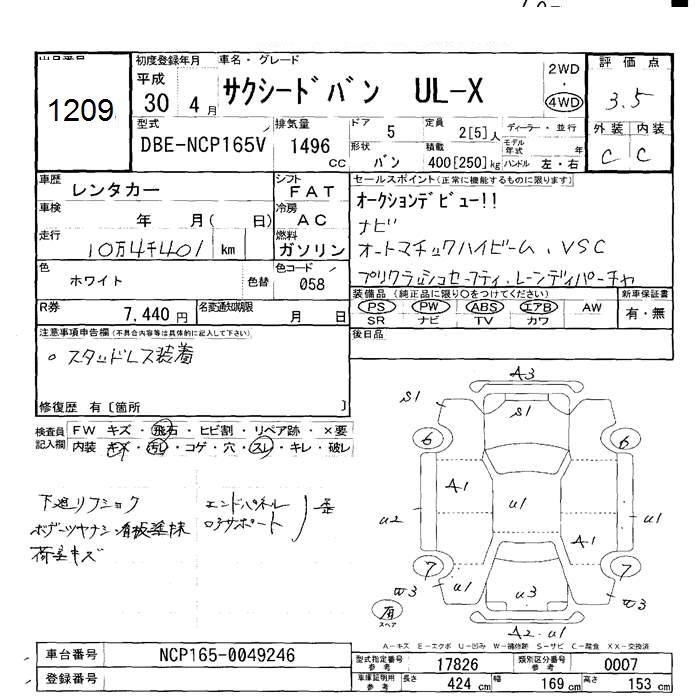 出品番号
1209
初度登録年月
平成
30 4月
車名・グレード
サクシードバン UL-X
2WD
・
4WD
評価点
3.5
外装 内装
C C
型式
DBE-NCP165V
排気量
1496
cc
ドア
5
定員
2[5]人
形状
バン
積載
400[250]kg
ディーラー・並行
モデル年式 年
ハンドル 左・右
車歴
レンタカー
シフト
FAT
車検
年 月( 日)
冷房
AC
走行
10万4千401 km
燃料
ガソリン
色
ホワイト
色替
色コード
058
R券
7,440円
名変通知期限
月 日
セールスポイント(正常に機能するものに限ります)
オークションデビュー!!
ナビ
オートマチックハイビーム、VSC
プリクラッシュセーフティ、レーンディパーチャ
装備品(純正品に限り〇をつけてください)
PS PW ABS エアB AW
SR ナビ TV カワ
新車保証書
有・無
後日品
注意事項申告欄(不具合内容等は具体的に記入して下さい)
○ スタッドレス装着
修復歴 有〔箇所 〕
検査員記入欄
FW キズ・飛石・ヒビ割・リペア跡・×要
内装 キズ・汚レ・コゲ・穴・スレ・キレ・破レ
下廻リフショク
エンドパネル
ロアサポート
歪
荷室キズ
A3
S1
S1
6
6
A1
u1
u2
u1
A1
7
7
u1
u3
W3
W3
A2 u1
有
スペア
A-キズ E-エクボ U-凹み W-補修跡 S-サビ C-腐食 XX-交換済
車台番号
NCP165-0049246
登録番号
型式指定番号
参考
17826
類別区分番号
参考
0007
車庫証明用
参考
長さ
424 cm
幅
169 cm
高さ
153 cm